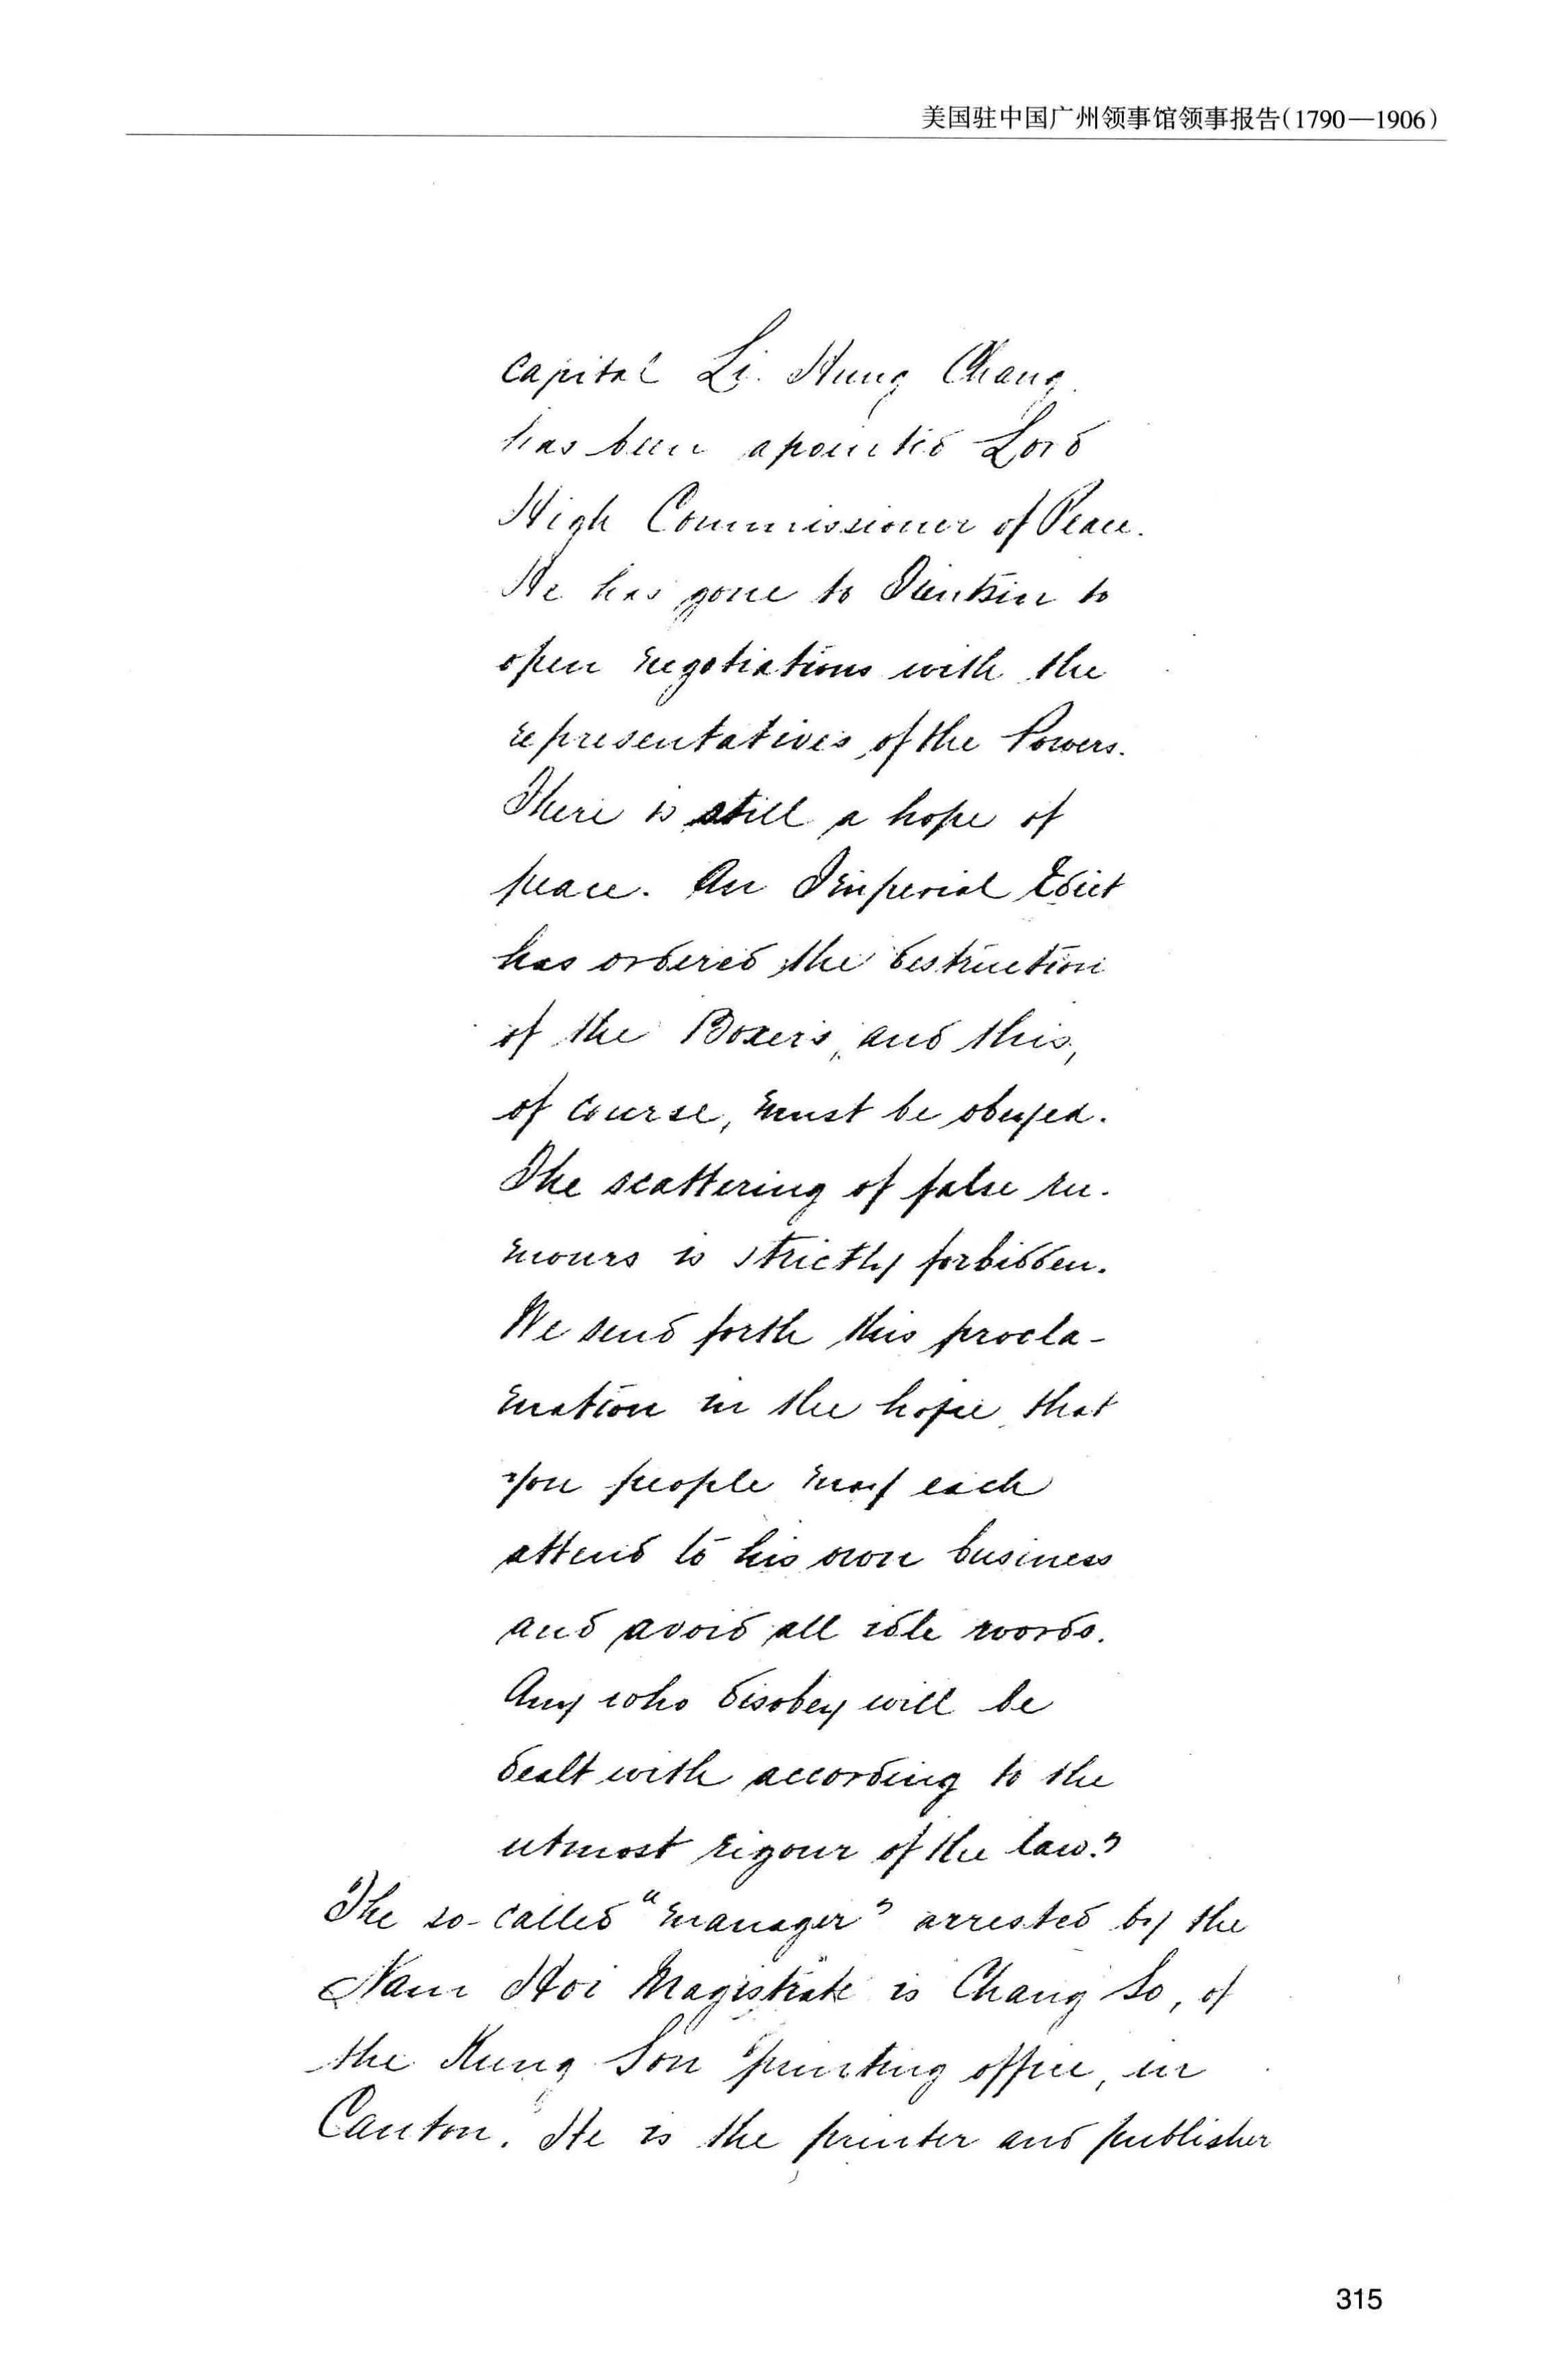 美国驻中国广州领事馆领事报告(1790—1906)
capital Li Hung Chang
has been apointed Lord
High Commissioner of Peace.
He has gone to Tientsin to
open negotiations with the
representatives of the Powers.
There is still a hope of
peace. An Imperial Edict
has ordered the destruction
of the Boxers, and this,
of course, must be obeyed.
The scattering of false ru-
mours is strictly forbidden.
We send forth this procla-
mation in the hope that
you people may each
attend to his own business
and avoid all idle words.
Any who disobey will be
dealt with according to the
utmost rigour of the law."
The so-called "manager" arrested by the
Nam Hoi Magistrate is Chang So, of
the Kung Son printing office, in
Canton. He is the printer and publisher
315